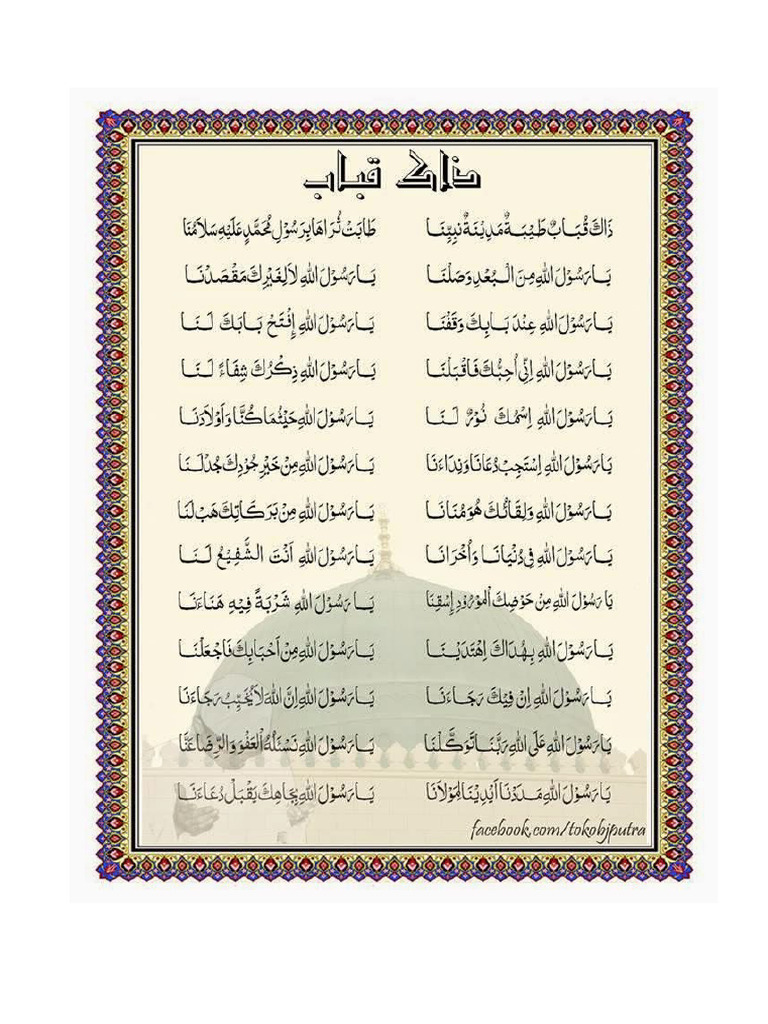 ذاك قباب
ذَاكَ قُبَابٌ طَيْبَةٌ مَدِيْنَةٌ نَبِيِّنَا طَابَتْ ثُرَاهَا بِرَسُوْلِ مُحَمَّدٍ عَلَيْهِ سَلَامُنَا
يَا رَسُوْلَ اللهِ مِنَ الْبُعْدِ وَصَلْنَا يَا رَسُوْلَ اللهِ لَا لِغَيْرِكَ مَقْصَدْنَا
يَا رَسُوْلَ اللهِ عِنْدَ بَابِكَ وَقَفْنَا يَا رَسُوْلَ اللهِ إِفْتَحْ بَابَكَ لَنَا
يَا رَسُوْلَ اللهِ اِنِّى اُحِبُّكَ فَاقْبَلْنَا يَا رَسُوْلَ اللهِ ذِكْرُكَ شِفَاءً لَنَا
يَا رَسُوْلَ اللهِ اِسْمُكَ نُوْرٌ لَنَا يَا رَسُوْلَ اللهِ حَيْثُمَا كُنَّا وَاَوْلَادَنَا
يَا رَسُوْلَ اللهِ اِسْتَجِبْ دُعَانَا وَنِدَاءَنَا يَا رَسُوْلَ اللهِ مِنْ خَيْرِ جُوْدِكَ جُدْلَنَا
يَا رَسُوْلَ اللهِ وَلِقَائُكَ هُوَ مُنَانَا يَا رَسُوْلَ اللهِ مِنْ بَرَكَاتِكَ هَبْ لَنَا
يَا رَسُوْلَ اللهِ فِى دُنْيَانَا وَاُخْرَانَا يَا رَسُوْلَ اللهِ اَنْتَ الشَّفِيْعُ لَنَا
يَا رَسُوْلَ اللهِ مِنْ حَوْضِكَ الْمَوْرُوْدِ إِسْقِنَا يَا رَسُوْلَ اللهِ شَرْبَةً فِيْهِ هَنَاءَنَا
يَا رَسُوْلَ اللهِ بِهُدَاكَ اِهْتَدَيْنَا يَا رَسُوْلَ اللهِ مِنْ اَحْبَابِكَ فَاجْعَلْنَا
يَا رَسُوْلَ اللهِ اِنْ فِيْكَ رَجَاءَنَا يَا رَسُوْلَ اللهِ اِنَّ اللهَ لَا يُخَيِّبُ رَجَاءَنَا
يَا رَسُوْلَ اللهِ عَلَى اللهِ رَبَّنَا تَوَكَّلْنَا يَا رَسُوْلَ اللهِ نَسْئَلُهُ الْعَفْوَ وَالرِّضَا عَنَّا
يَا رَسُوْلَ اللهِ مَدَدْنَا اَيْدِيْنَا لِمَوْلَانَا يَا رَسُوْلَ اللهِ بِجَاهِكَ يَقْبَلْ دُعَاءَنَا
facebook.com/tokobjputra